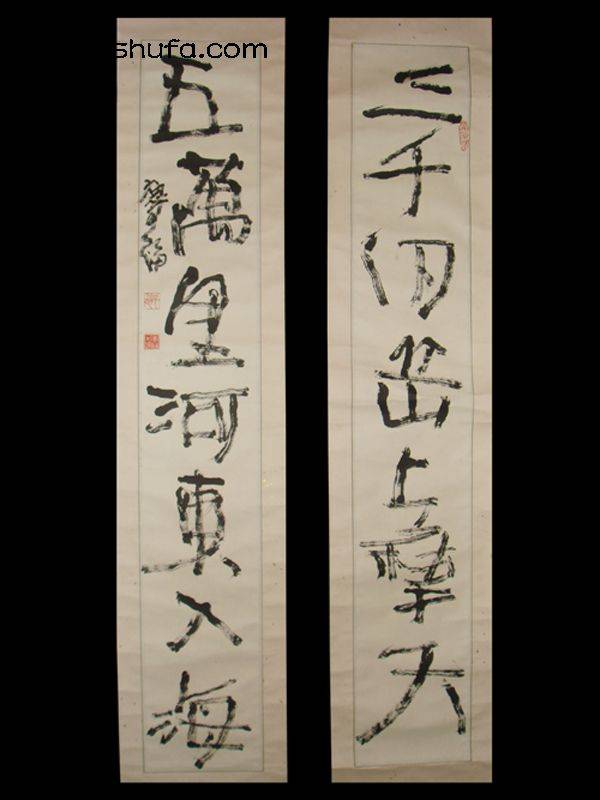 shufa.com
三千仞岳上摩天
五萬里河東入海